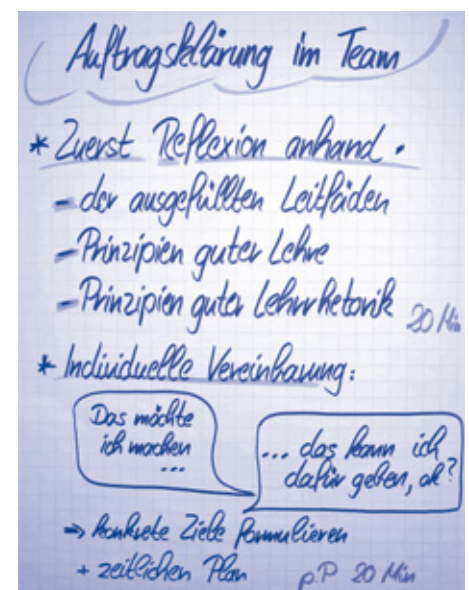 Auftragsklärung im Team
* Zuerst Reflexion anhand.
- der ausgefüllten Leitfäden
- Prinzipien guter Lehre
- Prinzipien guter Lehrrhetorik
20 Min
* Individuelle Vereinbarung:
Das möchte
ich machen
...
... das kann ich
dafür geben, ok?
⇒ konkrete Ziele formulieren
+ zeitlichen Plan
p.P 20 Min